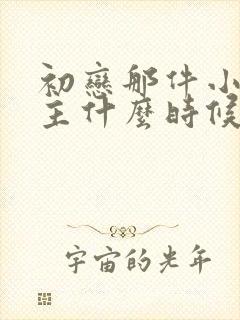 初戀那件小
主什麼時候
宇宙的光年